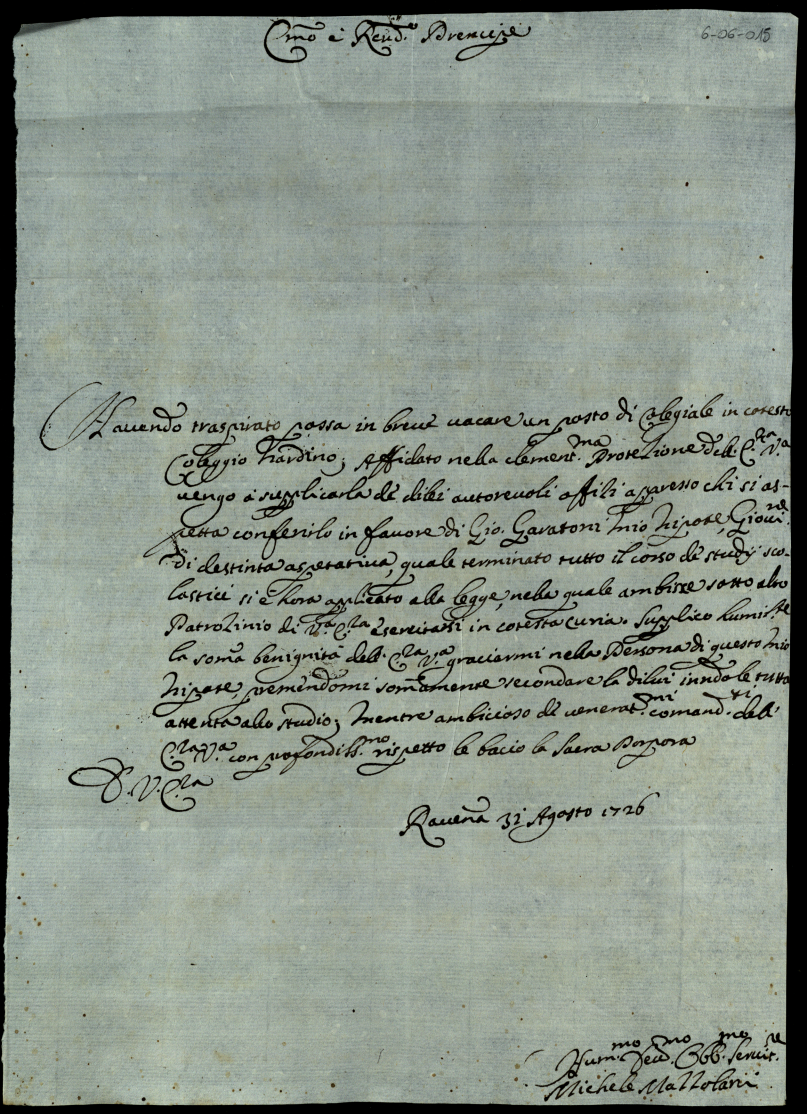 Em̃o e Reud.mo Prencipe
6-06-015
Hauendo traspirato possa in breue uacare un posto di Colegiale in cotesto
Coleggio Nardino; Affidato nella clement.ma Protezione dell' E.za V.a
uengo à supplicarla de dilei autoreuoli offizi appresso chi si as-
petta conferirlo in fauore di Gio. Garatoni mio Nipote, Gioui.ne
di destinta aspetatiua, quale terminato tutto il corso de studij sco-
lastici si è hora applicato alla legge, nella quale ambisse sotto alto
Patrozinio di V.a E.za esercitarsi in cotesta curia. Supplico humil.te
la som̃a benignità dell' E.za V.a graciarmi nella Persona di questo mio
Nipote, premendomi som̃amente secondare la dilui inndole tutta
attenta allo studio; Mentre ambicioso de uenerat.mi comand.ti dell'
E.za V.a con profondiss.mo rispetto le bacio la Sacra Porpora
D. V. E.za
Rauen̄a 31 Agosto 1726
Hum.mo Deu.mo Obb.mo Seruit.re
Michele Mazzolani